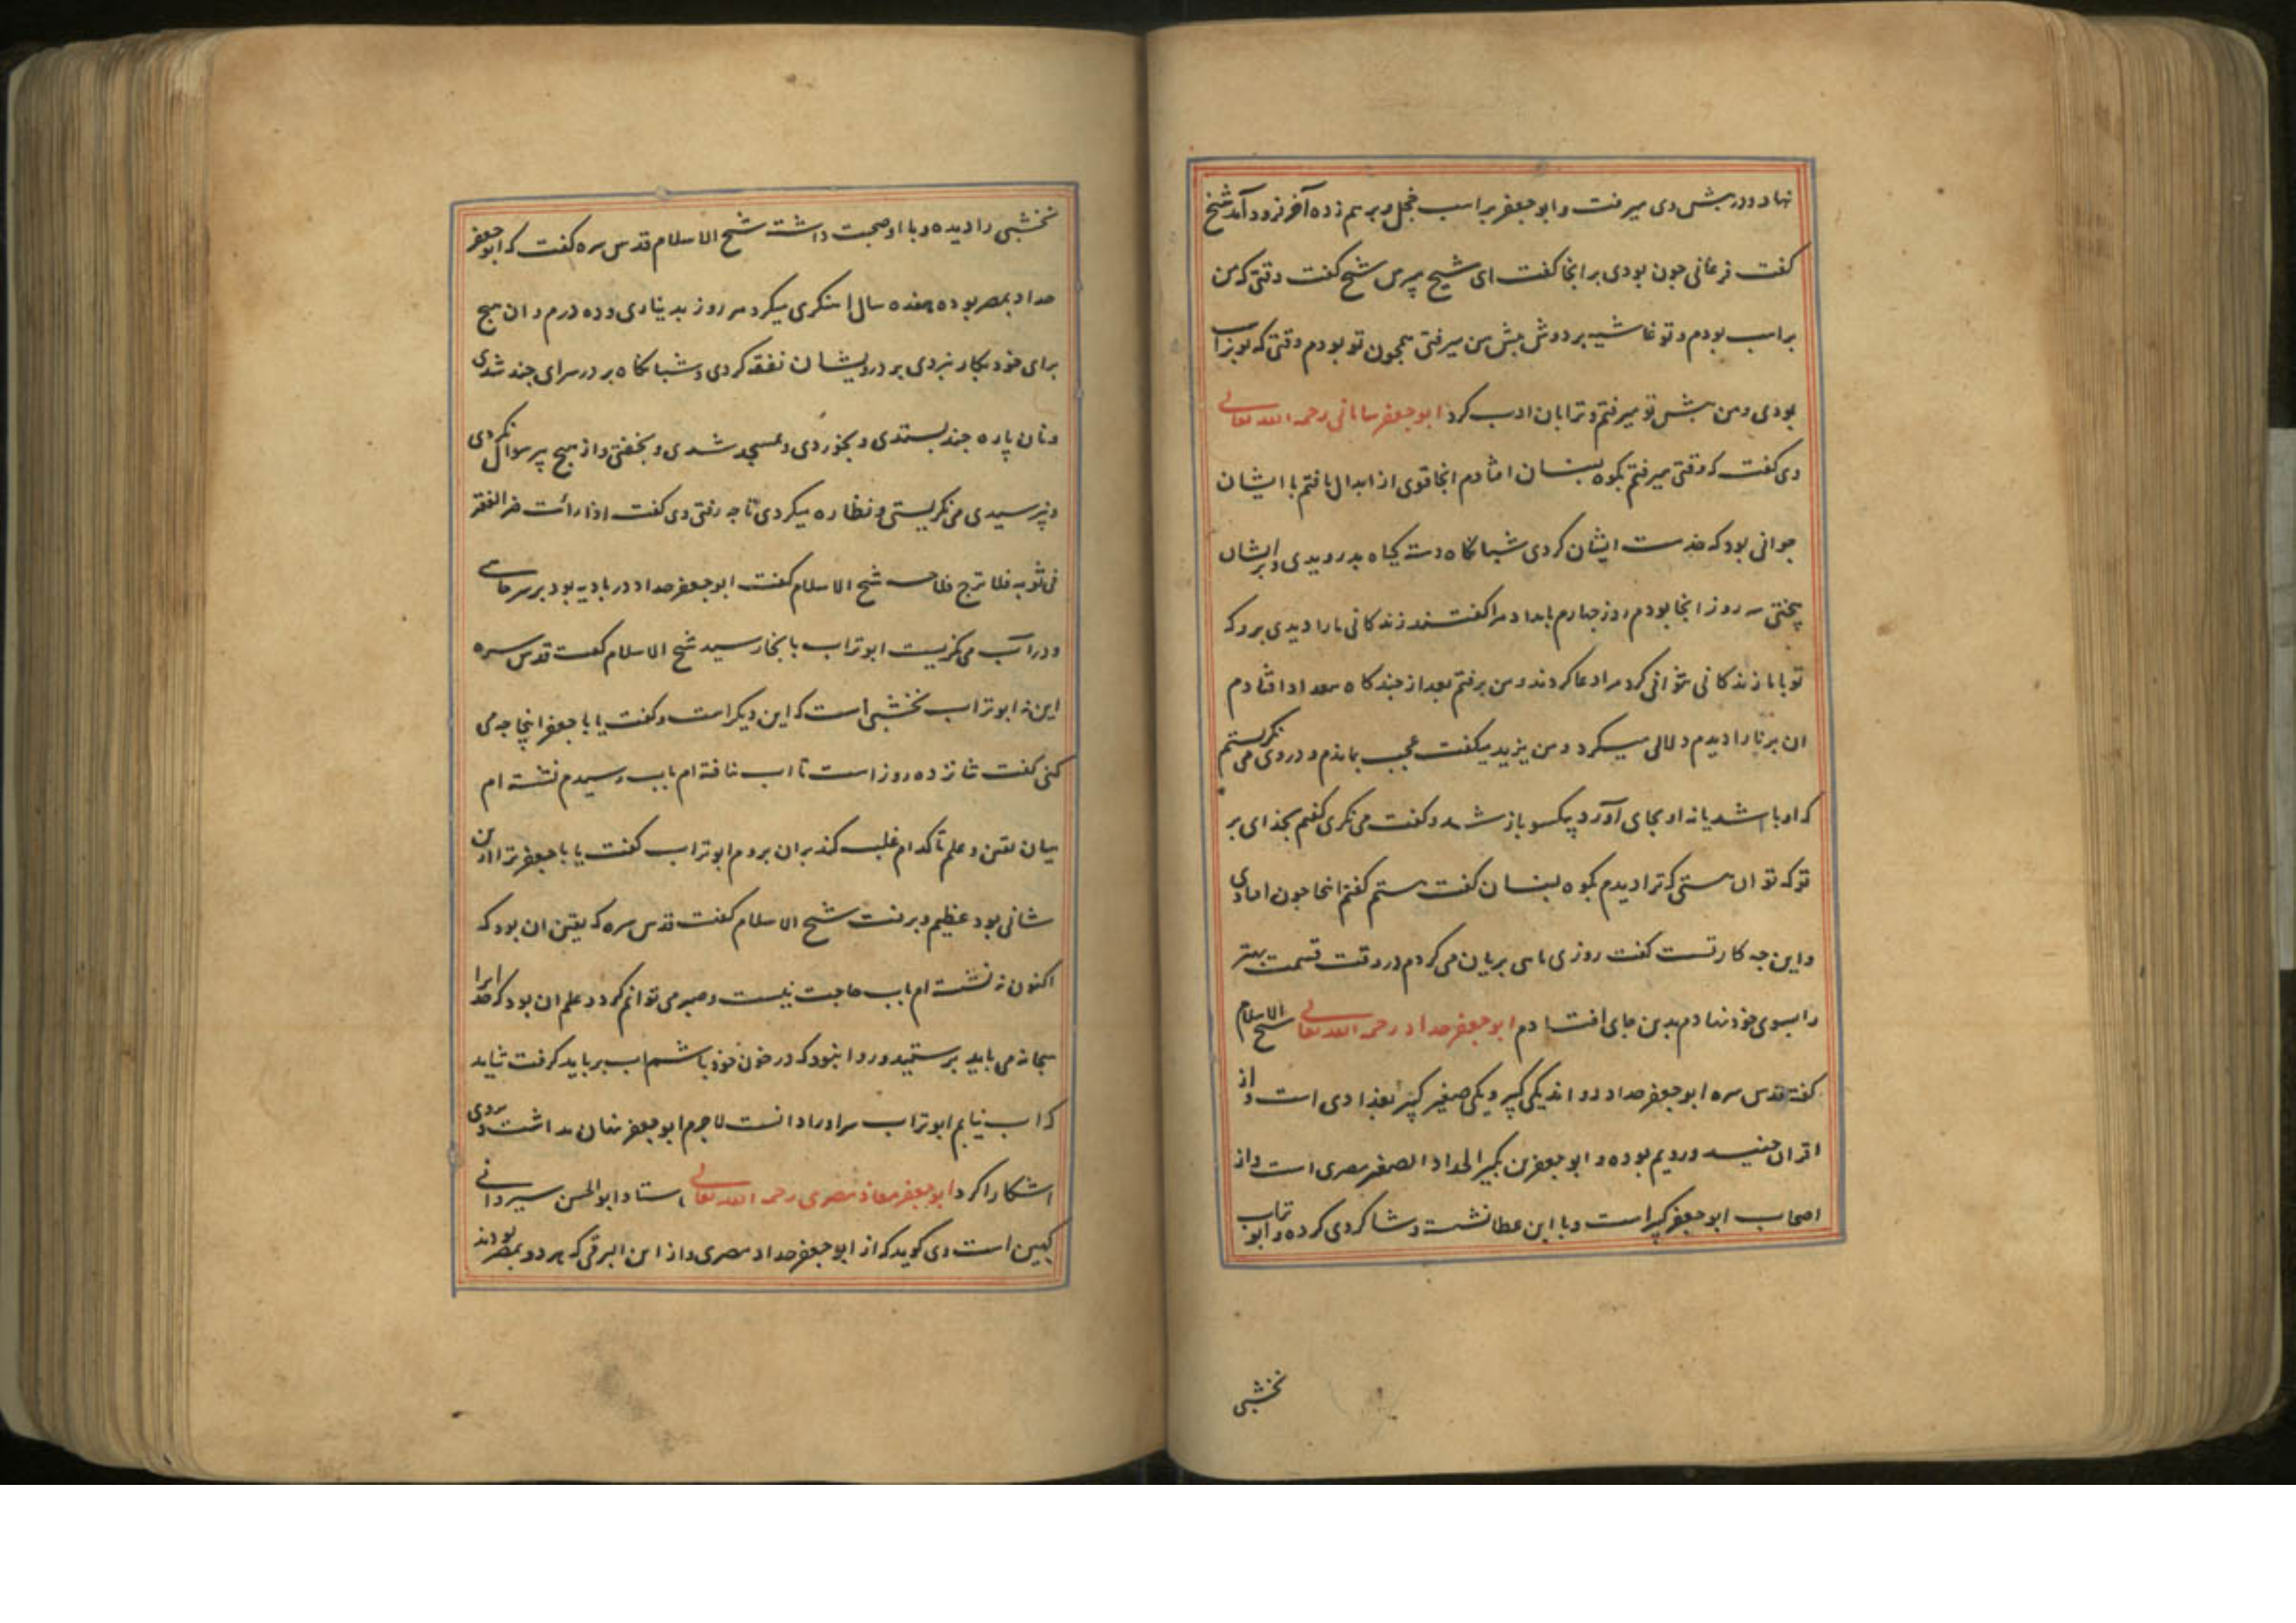 نهاد و در پیش وی میرفت و ابو جعفر بر اسب خجل و برهم زده آخر فرود آمد شیخ
گفت فرغانی چون بودی بر انجا گفت ای شیخ مپرس شیخ گفت وقتی که من
بر اسب بودم و تو غاشیه بر دوش پیش من میرفتی همچون تو بودم وقتی که تو بر اسب
بودی و من پیش تو میرفتم و ترا بان ادب کرد ابو جعفر سامانی رحمه الله تعالی
وی گفت که وقتی میرفتم بکوه لبنان افتادم انجا قومی از ابدال یافتم با ایشان
جوانی بود که خدمت ایشان کردی شبانگاه دسته گیاه بدرویدی و برایشان
پختی سه روز انجا بودم روز چهارم بامداد مرا گفتند زندگانی ما را دیدی برو که
تو با ما زندگانی نتوانی کرد مرا دعا کردند و من برفتم بعد از چندگاه ببغداد افتادم
ان برنا را دیدم دلالی میکرد و من یزید میگفت عجب بماندم و در وی می نگریستم
که او باشد یا نه او بجای آورد یکسو باز شد و گفت می نگری گفتم بخدای بر
تو که تو ان هستی که ترا دیدم بکوه لبنان گفت هستم گفتم انجا چون افتادی
و این چه کار تست گفت روزی ماهی بریان می کردم در وقت قسمت بهتر
را بسوی خود نهادم بدین جای افتادم ابو جعفر حداد رحمه الله تعالی شیخ الاسلام
گفته قدس سره ابو جعفر حداد دو اند یکی کبیر و یکی صغیر کبیر بغدادی است و از
اقران جنید و رویم بوده و ابو جعفر بن بکیر الحداد الصغیر مصری است و از
اصحاب ابو جعفر کبیر است و با ابن عطا نشست و شاگردی کرده و ابو تراب
نخشبی
نخشبی را دیده و با او صحبت داشت شیخ الاسلام قدس سره گفت که ابو جعفر
حداد بمصر بوده هفده سال اهنگری میکرد هر روز بدیناری و ده درم و ان هیچ
برای خود بکار نبردی بر درویشان نفقه کردی و شبانگاه بر در سرای چند شدی
و نان پاره چند بستدی و بخوردی و بمسجد شدی و بخفتی و از هیچ پیر سوال نکردی
و نپرسیدی می نگریستی و نظاره میکردی تا چه رفتی وی گفت اذا رأیت ضر الفقر
فی ثوبه فلا ترج فلاحه شیخ الاسلام گفت ابو جعفر حداد در بادیه بود بر سر چاهی
و در آب می نگریست ابو تراب بانجا رسید شیخ الاسلام گفت قدس سره
این نه ابو تراب نخشبی است که این دیگر است و گفت یا با جعفر اینجا چه می
کنی گفت شانزده روز است تا اب نیافته ام باب رسیدم نشسته ام
میان یقین و علم تا کدام غلبه کند بران بروم ابو تراب گفت یا با جعفر ترا ازین
شانی بود عظیم و برفت شیخ الاسلام گفت قدس سره که یقین ان بود که
اکنون نه تشنه ام باب حاجت نیست و صبر می توانم کرد و علم ان بود که خدا را
سبحانه می باید پرستید و روا نبود که در خون خود باشم اب بر باید گرفت شاید
که اب نیابم ابو تراب سر او را دانست لاجرم ابو جعفر پنهان داشت و وی
اشکارا کرد ابو جعفر معاذ مصری رحمه الله تعالی استاد ابو الحسن سیروانی
کهین است وی گوید که از ابو جعفر حداد مصری و از ابن البرقی که هر دو بمصر بودند